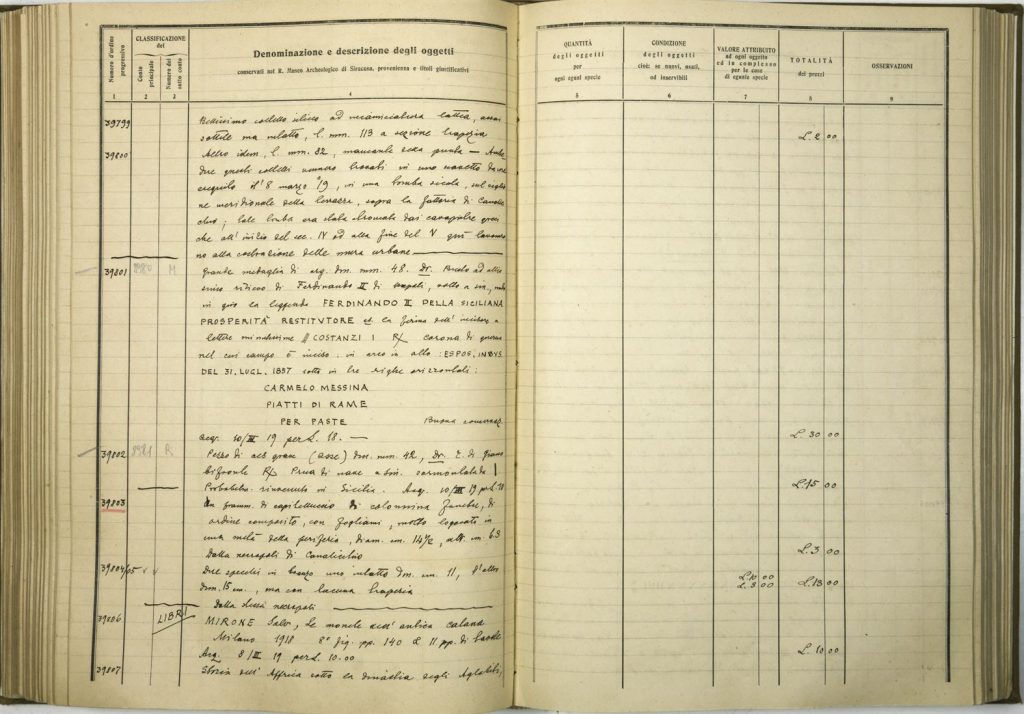 Numero d'ordine progressivo
CLASSIFICAZIONE del
Conto principale
Numero del sotto conto
Denominazione e descrizione degli oggetti
conservati nel R. Museo Archeologico di Siracusa, provenienza e titoli giustificativi
QUANTITÀ degli oggetti per ogni egual specie
CONDIZIONE degli oggetti cioè: se nuovi, usati, od inservibili
VALORE ATTRIBUITO ad ogni oggetto ed in complesso per le cose di eguale specie
TOTALITÀ dei prezzi
OSSERVAZIONI
1 2 3 4 5 6 7 8 9
39799 Bellissimo coltello siliceo ad
sottile ma intatto, l. mm. 113 a sezione trapezia L. 2 00
39800 Altro idem, l. mm. 82, mancante della punta — Ambe
due questi coltelli vennero trovati in uno
eseguito il 8 marzo '19, in una tomba sicula, sul ciglio
ne meridionale della terrazza, sopra la fattoria di Canalic
chio; tale tomba era stata dai greci
che all'inizio del sec. IV od alla fine del V qui lavoraro
no alla costruzione delle mura urbane
39801 M Grande medaglia di arg. dm. mm. 48. Dr. Busto ad altis
simo rilievo di Ferdinando II di Napoli, volto a sin.,
in giro la leggenda FERDINANDO II DELLA SICILIANA
PROSPERITÀ RESTITVTORE et la firma dell' incisore a
lettere minutissime COSTANZI I R/ corona di quercia
nel cui campo è inciso in arco in alto: ESPOS. INDVS.
DEL 31. LUGL. 1837 sotto in tre righe orizzontali:
CARMELO MESSINA
PIATTI DI RAME
PER PASTE Buona conservaz.
Acq. 10/III 19 per L. 18. — L. 30 00
39802 R Pezzo di aes grave (asse) dm. mm. 42, Dr. T. di Giano
bifronte R/ Prua di nave a sin. sormontata I
Probabilm. rinvenuto in Sicilia. Acq. 10/III 19 per L. 18 L. 15 00
39803 Un framm. di capitelluccio di colonnina funebre, di
ordine composito, con fogliami, molto logorato in
una metà della periferia, diam. cm. 14½, alt. cm 6.3
Dalla necropoli di Canalicchio L. 3 00
39804/05 v v Due specchi in bronzo uno intatto dm. cm. 11, l'altro L. 10 00
dm. 15 cm., ma con lacuna trapezia L. 3 00 L. 13 00
Dalla stessa necropoli
39806 LIBRI MIRONE Salv., Le monete dell' antica Catana
Milano 1918 8° fig. pp. 140 e 11 pp. di tavole
Acq. 8/III 19 per L. 10.00 L. 10 00
39807 Storia dell' Affrica sotto la dinastia degli Aglabiti,